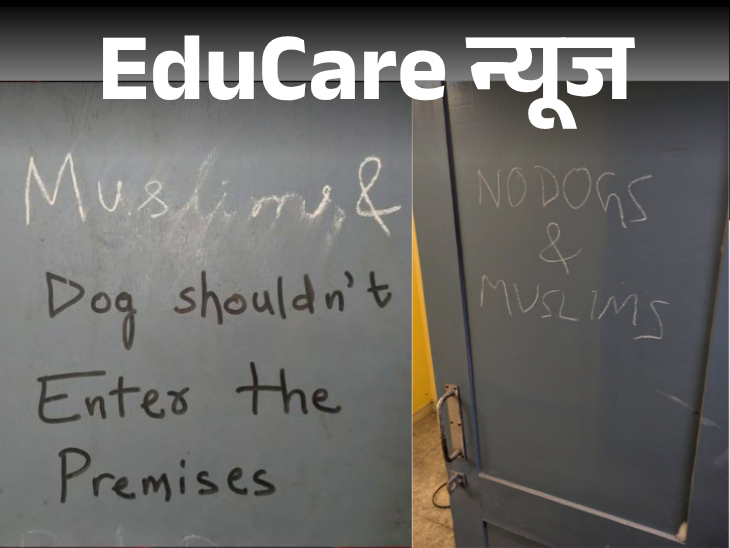 EduCare न्यूज
Muslims &
Dog shouldn't
Enter the
Premises
NO DOGS
&
MUSLIMS